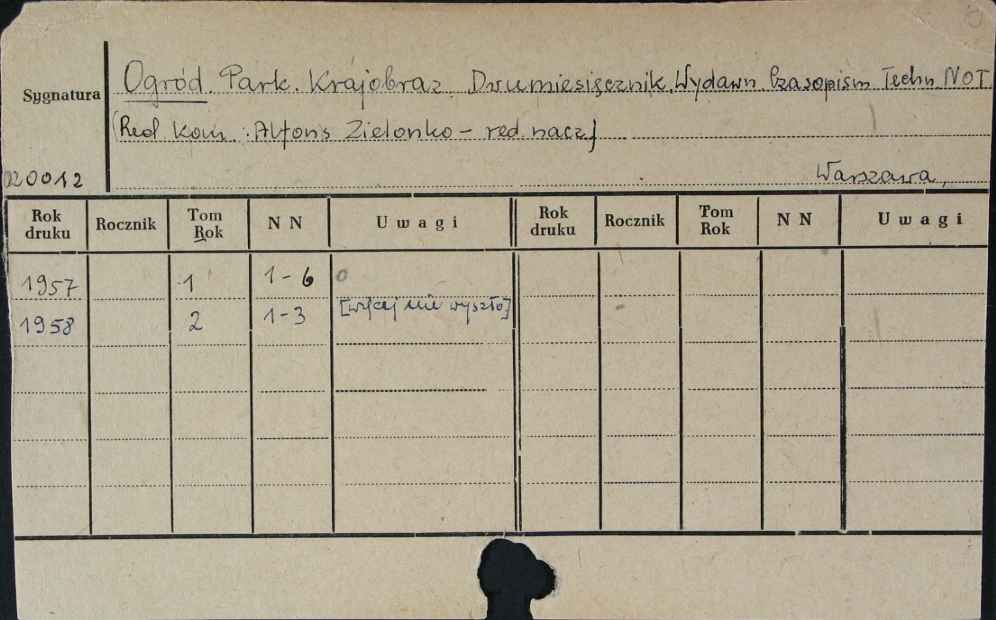 Ogród. Park. Krajobraz. Dwumiesięcznik. Wydawn. Czasopism Techn. NOT.
Sygnatura
(Red. Kom.: Alfons Zielonko - red. nacz.)
020012
Warszawa,
Rok druku Rocznik Tom Rok NN Uwagi Rok druku Rocznik Tom Rok NN Uwagi
1957 1 1-6
1958 2 1-3 [więcej nie wyszło]